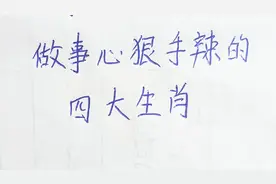 做事心狠手辣的
四大生肖